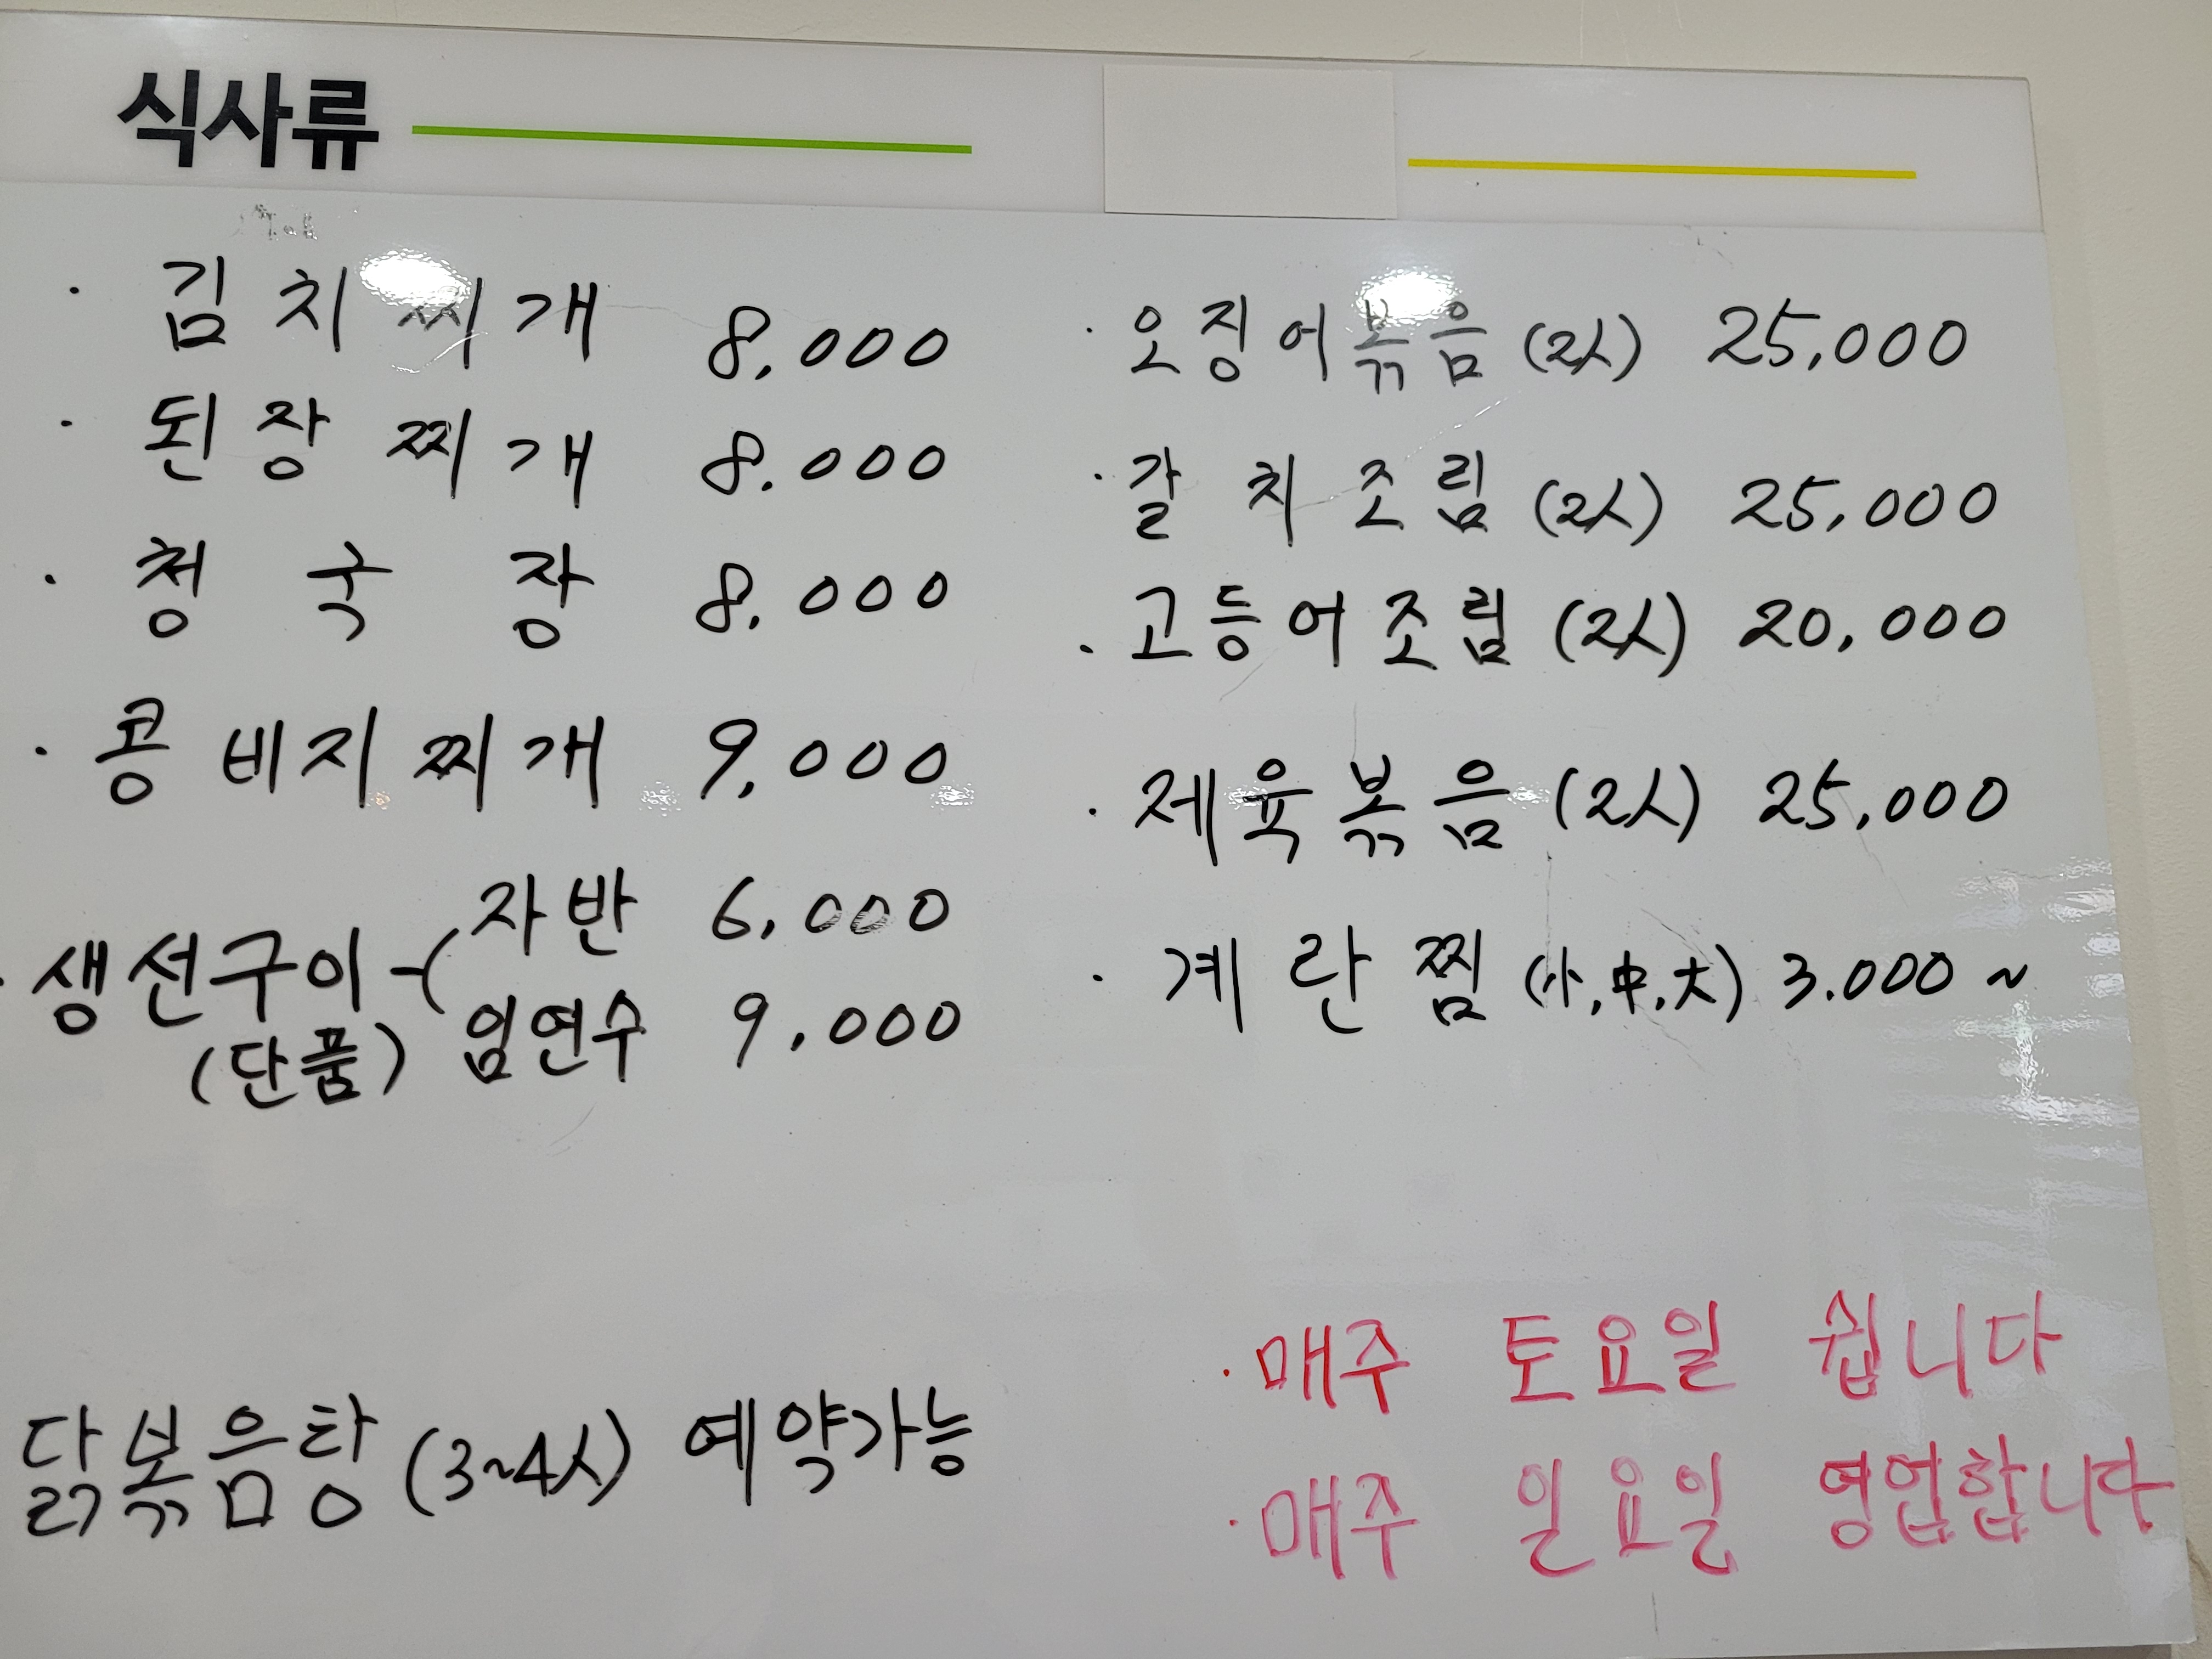 식사류
· 김치찌개 8,000
· 된장찌개 8.000
· 청국장 8,000
· 콩비지찌개 9,000
· 생선구이 -( 자반 6,000
(단품) 임연수 9,000
· 오징어볶음 (2人) 25,000
· 갈치조림 (2人) 25,000
· 고등어조림 (2人) 20,000
· 제육볶음 (2人) 25,000
· 계란찜 (小,中,大) 3.000 ~
닭볶음탕 (3~4人) 예약가능
· 매주 토요일 쉽니다
· 매주 일요일 영업합니다